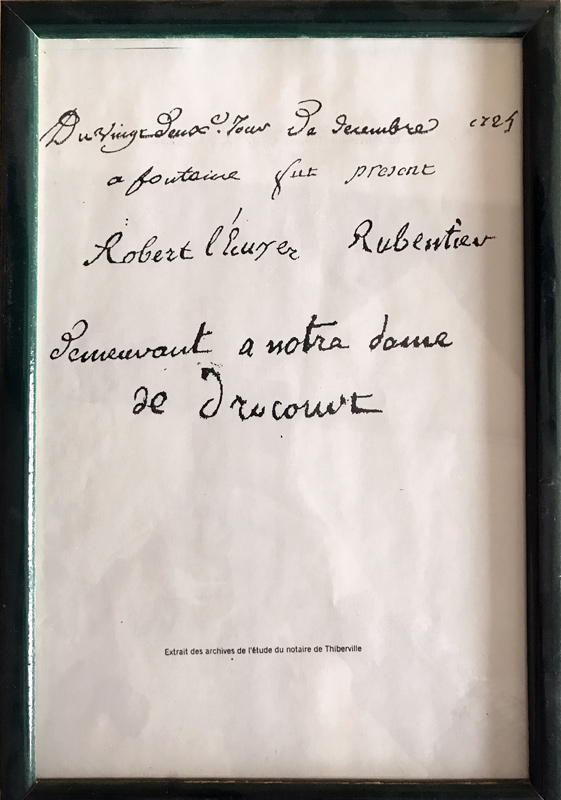 Du vingt Deux e. Jour De decembre 1725
a fontaine fut present
Robert l'Ecuyer Rubentier
Demeurant a notre dame
de Drucourt
Extrait des archives de l'étude du notaire de Thiberville